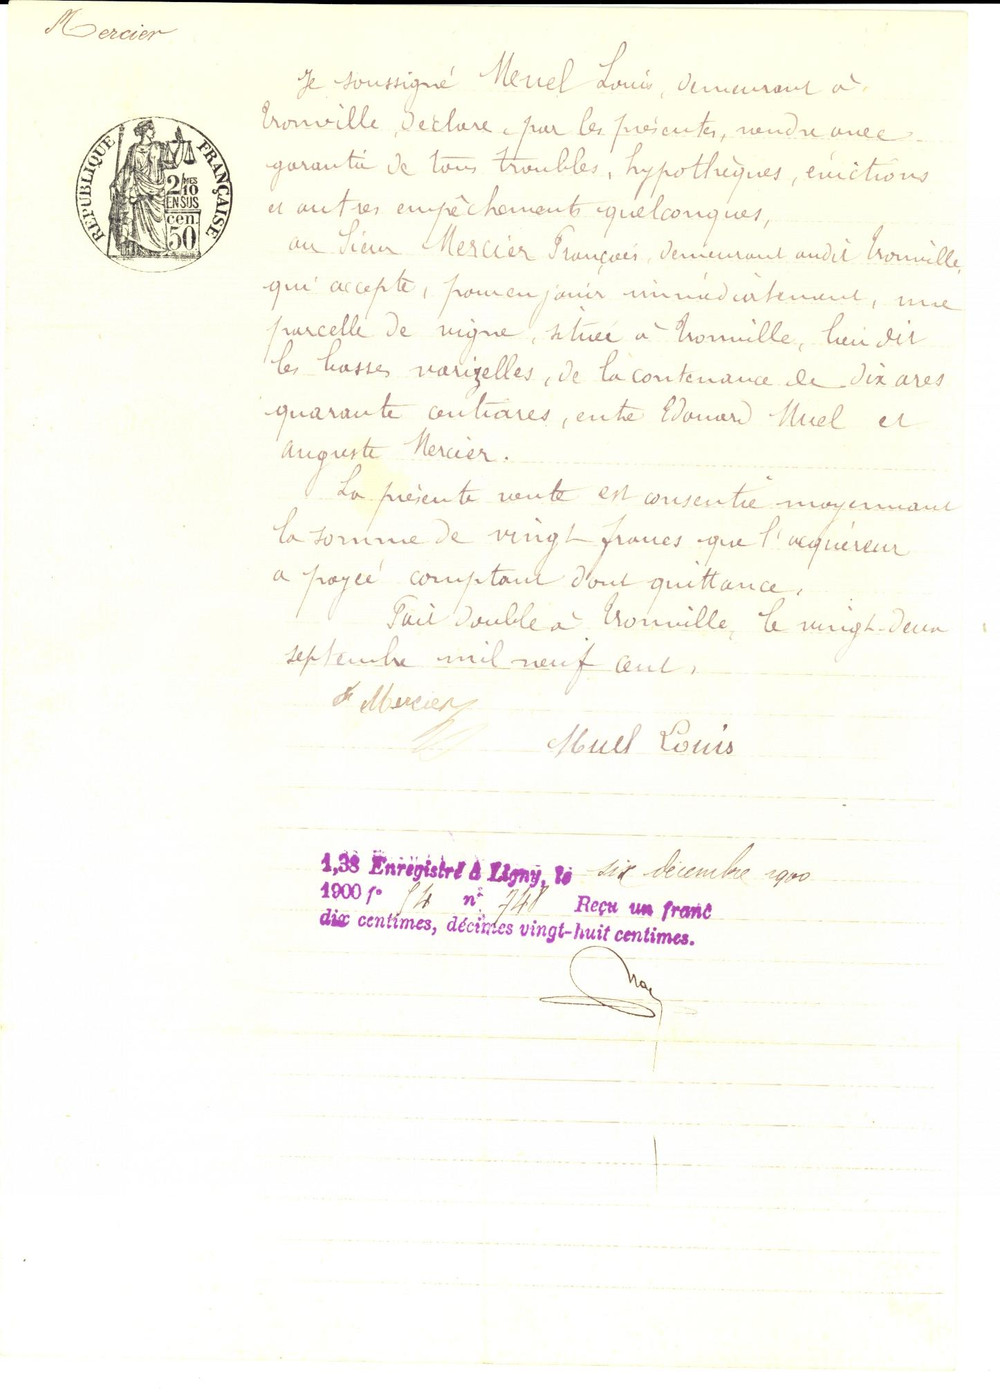 Mercier
Je soussigné Muel Louis, demeurant à
Tronville, déclare, par les présentes, vendre avec
garantie de tous troubles, hypothèques, évictions
et autres empêchements quelconques,
au Sieur Mercier François, demeurant audit Tronville,
qui accepte, pour en jouir immédiatement, une
parcelle de vigne, située à Tronville, lieu dit
les basses varizelles, de la contenance de dix ares
quarante centiares, entre Edouard Muel et
Auguste Mercier.
La présente vente est consentie moyennant
la somme de vingt francs que l'acquéreur
a payé comptant dont quittance.
Fait double à Tronville, le vingt-deux
septembre mil neuf cent.
F Mercier
Muel Louis
RÉPUBLIQUE FRANÇAISE
2/10 MES
EN SUS
50 cen.
1,38 Enregistré à Ligny, le six décembre 1900
1900 f° 54 n° 748 Reçu un franc
dix centimes, décimes vingt-huit centimes.